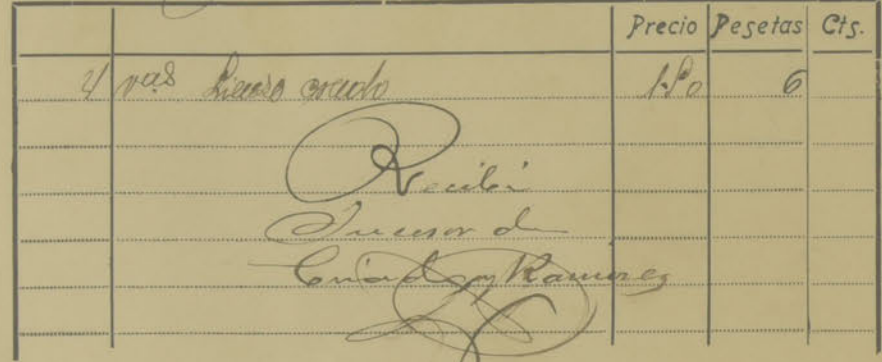 Precio Pesetas Cts.
4 vas Lienzo crudo 1.50 6
Recibí
Sucesor de
Criado y Ramirez